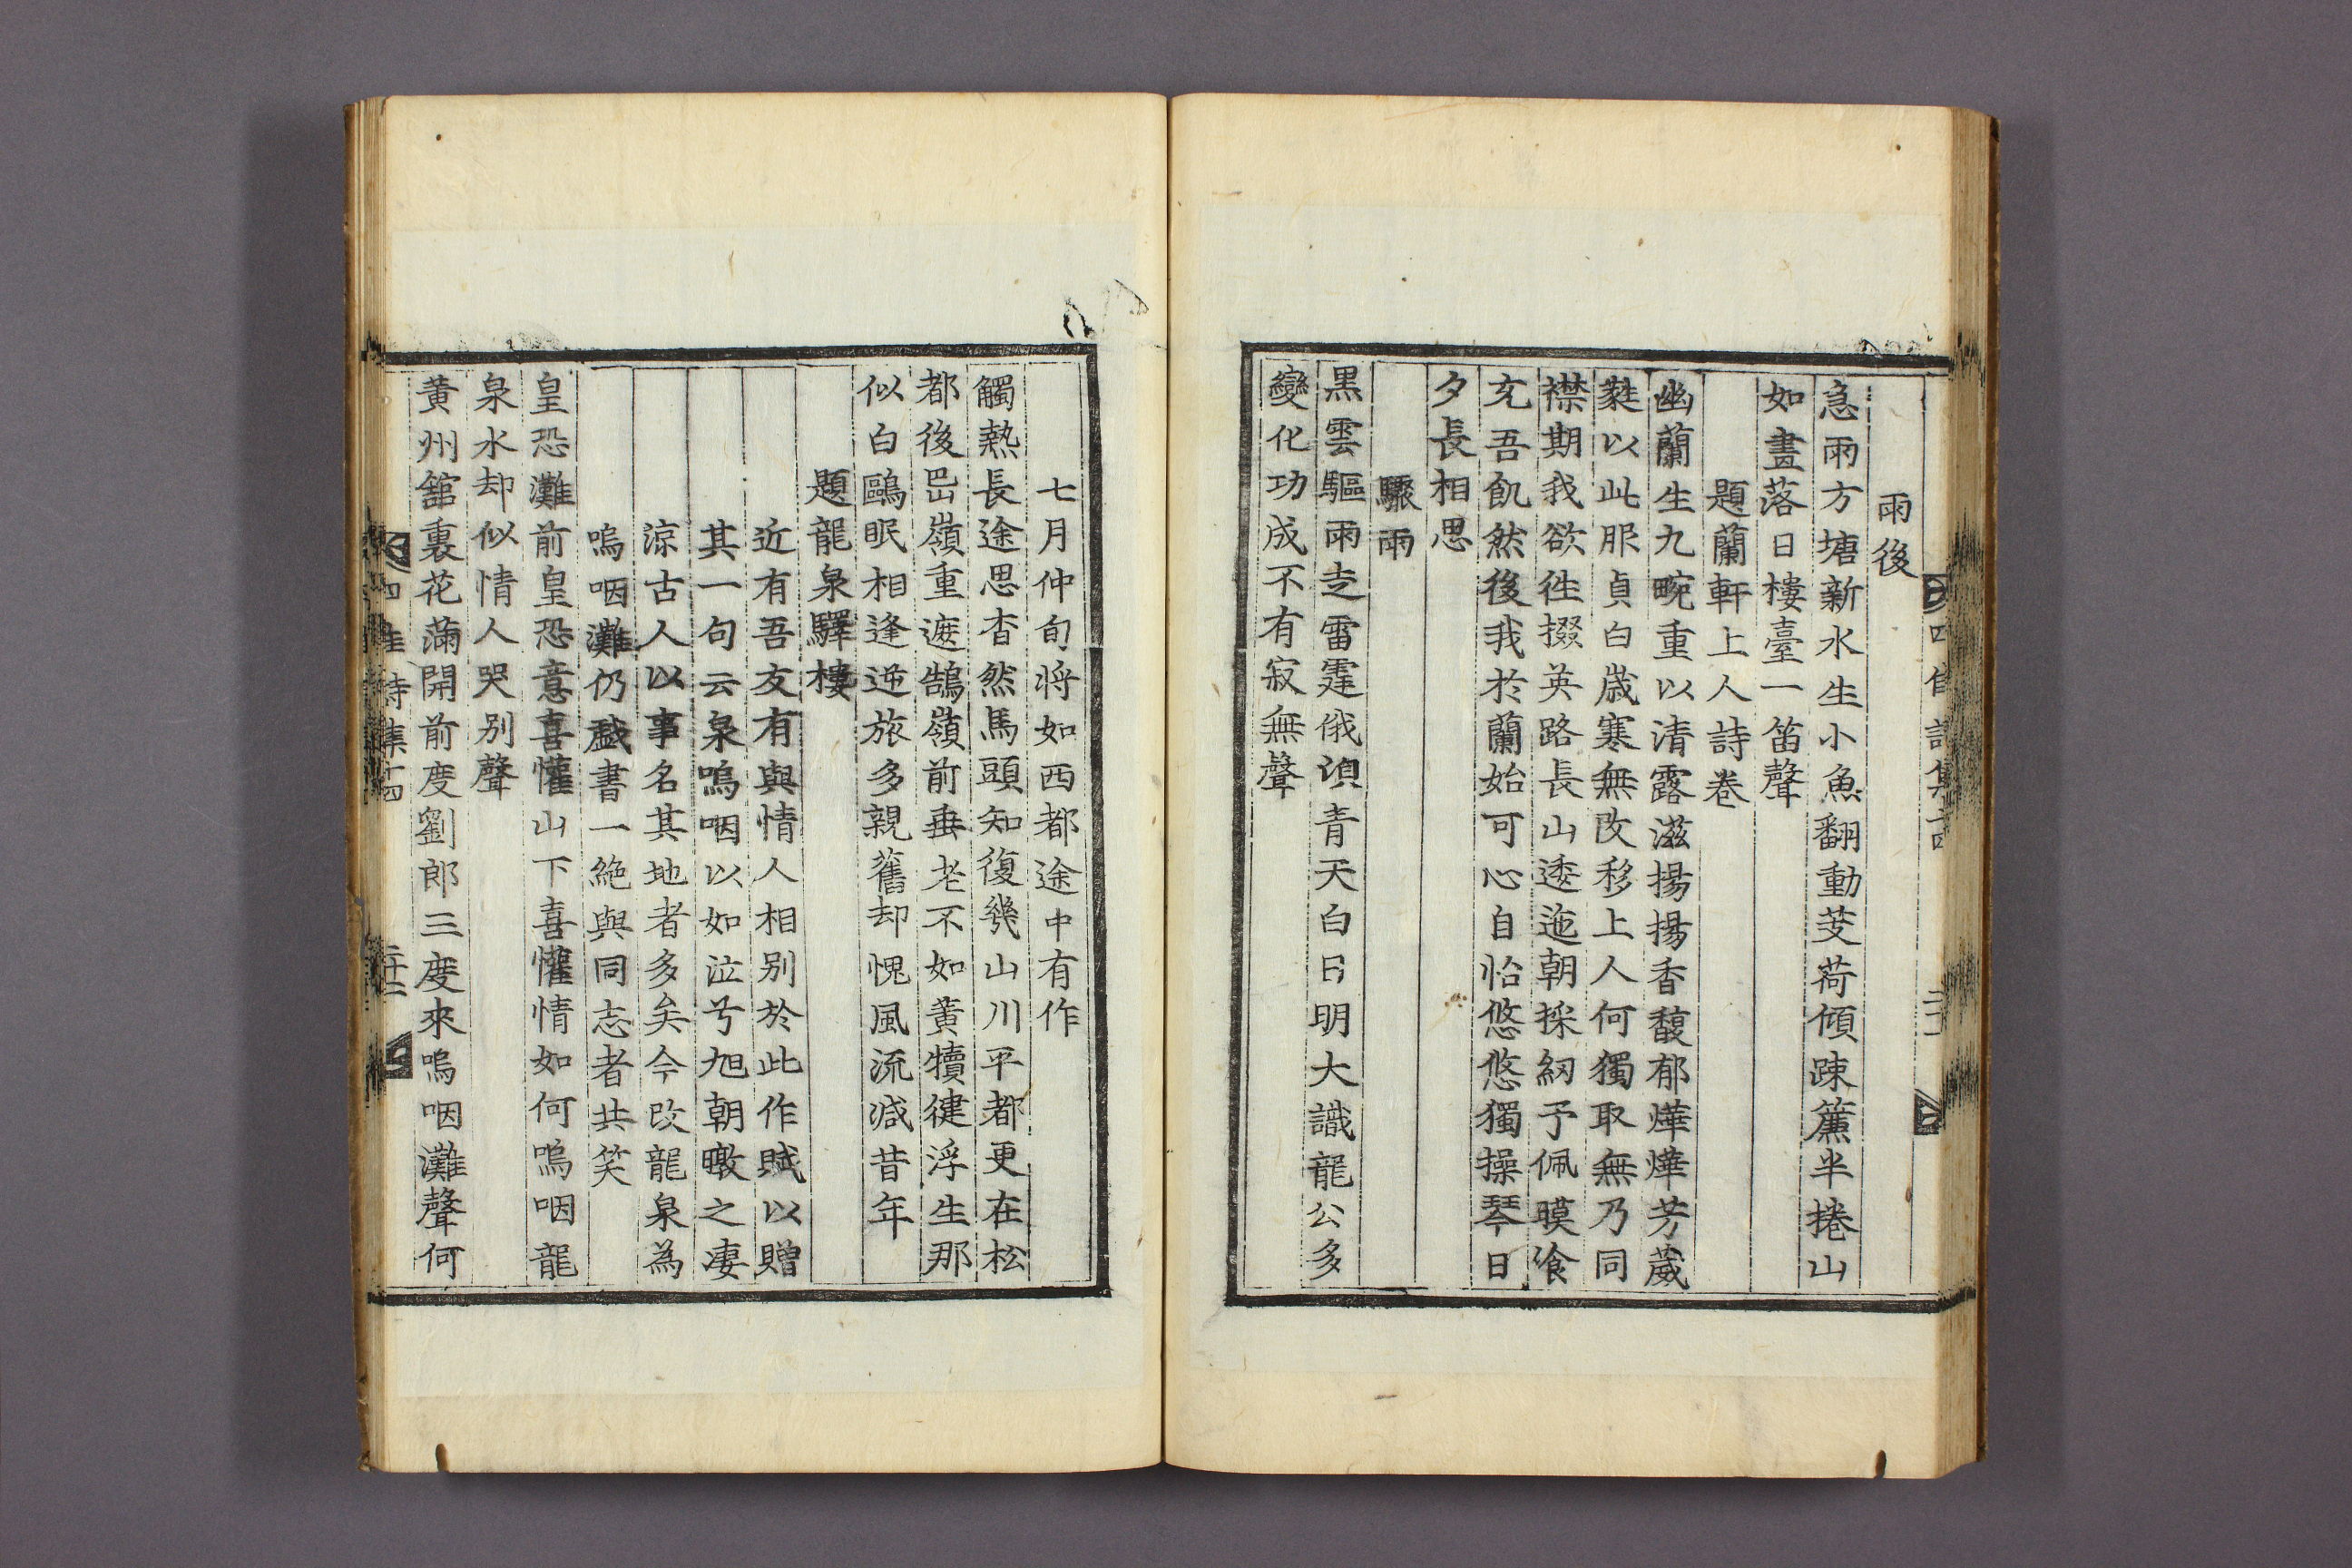 雨後
急雨方塘新水生小魚翻動芰荷傾踈簾半捲山
如畫落日樓臺一笛聲
題蘭軒上人詩卷
幽蘭生九畹重以清露滋揚揚香馥郁燁燁芳葳
蕤以此服貞白歲寒無改移上人何獨取無乃同
襟期我欲徃掇英路長山逶迤朝採紉予佩暯飡
充吾飢然後我於蘭始可心自怡悠悠獨操琴日
夕長相思
驟雨
黒雲驅雨走雷霆俄湏青天白日明大識龍公多
變化功成不有寂無聲
七月仲旬將如西都途中有作
觸熱長途思杳然馬頭知復幾山川平都更在松
都後岊嶺重遮鵠嶺前垂老不如黃犢健浮生那
似白鷗眠相逢逆旅多親舊却愧風流减昔年
題龍泉驛樓
近有吾友有與情人相別於此作賦以贈
其一句云泉嗚咽以如泣兮旭朝暾之凄
涼古人以事名其地者多矣今改龍泉為
嗚咽灘仍戯書一絶與同志者共笑
皇恐灘前皇恐意喜懽山下喜懽情如何嗚咽龍
泉水却似情人哭別聲
黃州舘裏花滿開前度劉郎三度來嗚咽灘聲何
四佳詩集十四